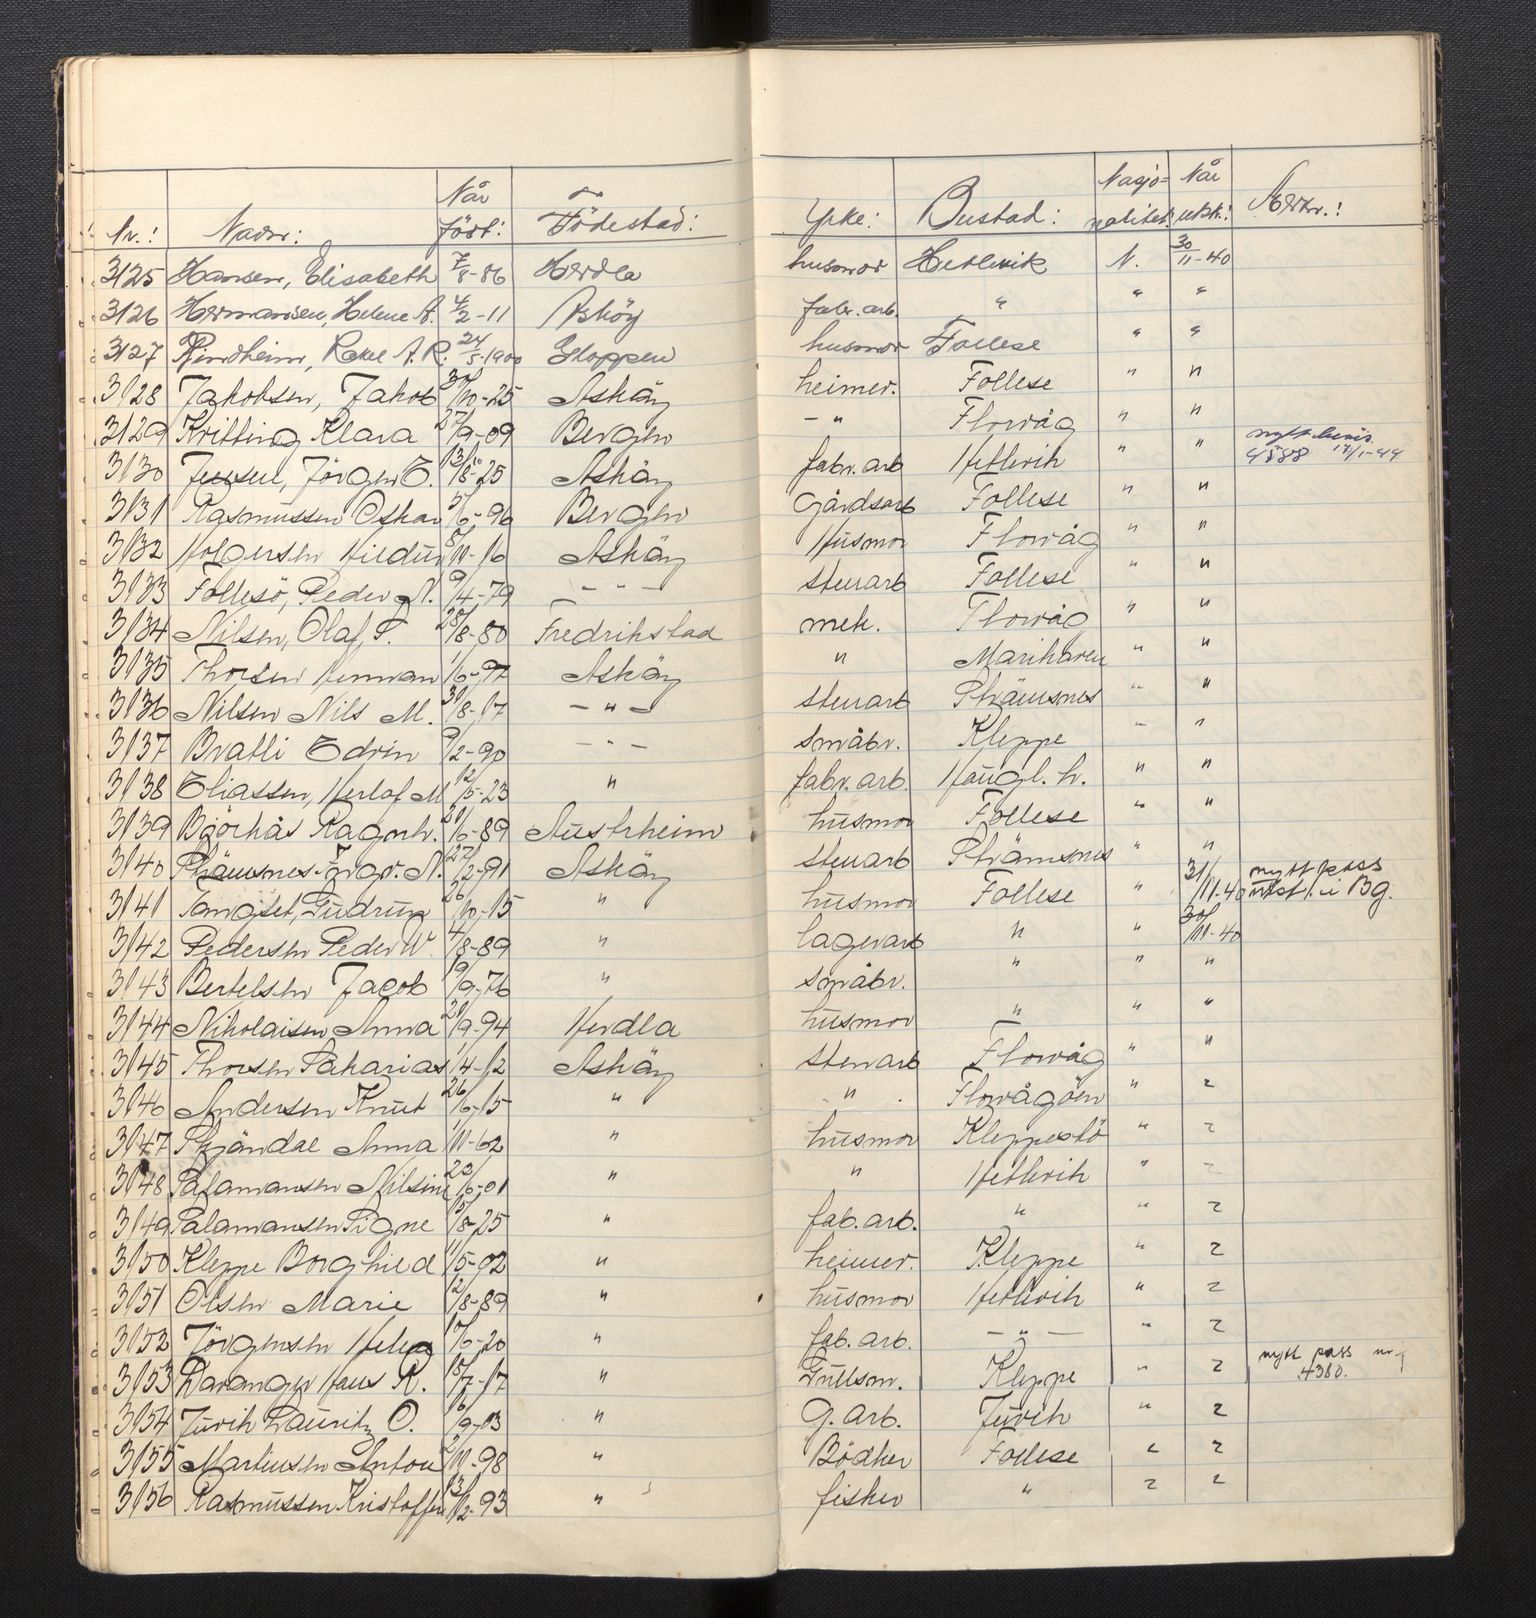 Nr.: Navn: Når født: Födestad: Yrke: Bustad: Nasjonalitet: Når utsk.: Merkn.:
3125 Hansen, Elisabeth 7/8-86 Herdla husmor Hetlevik N. 30/11-40
3126 Hermansen, Helene A. 4/2-11 Askøy fabr.arb. " " "
3127 Rindheim, Rakel A. R. 24/5-1900 Gloppen husmor Follese " "
3128 Jakobsen, Jakob 30/10-25 Askøy heimev. Follese " "
3129 Kvitting Klara 27/9-09 Bergen - " Florvåg " "
3130 Jensen, Jörgen E. 13/8-25 Askøy fabr.arb Hetlevik " " nytt bevis 4588 14/1-44
3131 Rasmussen Oskar 5/6-96 Bergen Gårdsarb Follese " "
3132 Holgersen Hildur 8/11-16 Askøy Husmor Florvåg " "
3133 Follesö, Peder N. 9/4-79 - " - stenarb Follese " "
3134 Nilsen, Olaf, F. 28/8-80 Fredrikstad mek. Florvåg " "
3135 Thorsen Herman 1/6-97 Askøy " Marikoven " "
3136 Nilsen Nils M. 30/8-17 - " - stenarb Skråmsnes " "
3137 Bratli Edvin 9/2-90 - " - småbr. Kleppe " "
3138 Eliassen, Herlof M 12/5-23 " fabr.arb. Haugl.h. " "
3139 Björkås Ragnh. 20/6-89 Austrheim husmor Follese " "
3140 Skråmsnes Ingv. N. 27/2-91 Askøy stenarb Skråmsnes " "
3141 Tangset, Gudrun 26/10-15 " husmor Follese " 31/11-40 nytt pass utst. i Bg.
3142 Pedersen Peder W. 4/8-89 " lagerarb " " 30/11-40
3143 Bertelsen Jacob 19/9-76 " småbr. " " "
3144 Nikolaisen Anna 20/9-94 Herdla husmor " " "
3145 Thorsen Sakarias 1/4-12 Askøy stenarb Florvåg " "
3146 Andersen Knut 26/6-15 " " Florvågöen " "
3147 Skjöndal Anna 1/11-62 " husmor Kleppestö " "
3148 Salamonsen Nilsine 23/6-01 " " Hetlevik " "
3149 Salamonsen Signe 15/8-25 " fab.arb. " " "
3150 Kleppe Borghild 1/5-92 " heimev. Kleppe " "
3151 Olsen Marie 12/8-89 " husmor Hetlevik " "
3152 Jörgensen Helga 10/6-20 " fab.arb. - " - " "
3153 Davanger Hans R. 18/7-17 " Gullsm. Kleppe " " nytt pass nr. 4380.
3154 Juvik Lauritz O. 16/9-03 " G.arb. Juvik " "
3155 Martinsen Anton 2/11-98 " Bödker Follese " "
3156 Rasmussen Kristoffer 13/12-93 " fisker " " "